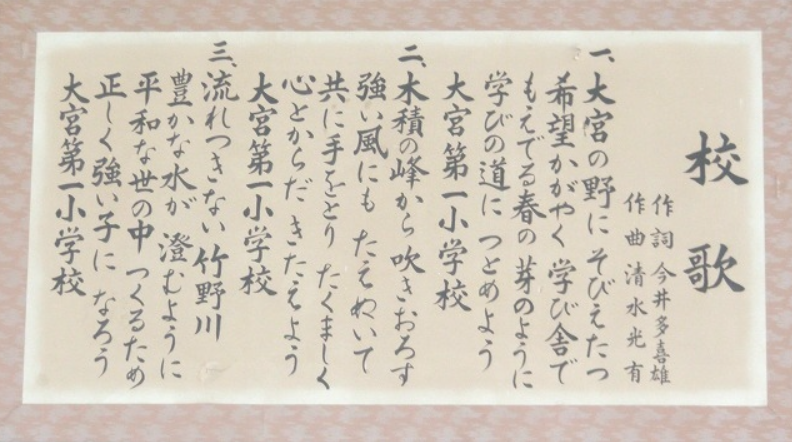 校歌
作詞 今井多喜雄
作曲 清水光有
一、大宮の野に そびえたつ
希望かがやく 学び舎で
もえでる春の 芽のように
学びの道に つとめよう
大宮第一小学校
二、木積の峰から 吹きおろす
強い風にも たえぬいて
共に手をとり たくましく
心とからだ きたえよう
大宮第一小学校
三、流れつきない 竹野川
豊かな水が 澄むように
平和な世の中 つくるため
正しく強い子に なろう
大宮第一小学校